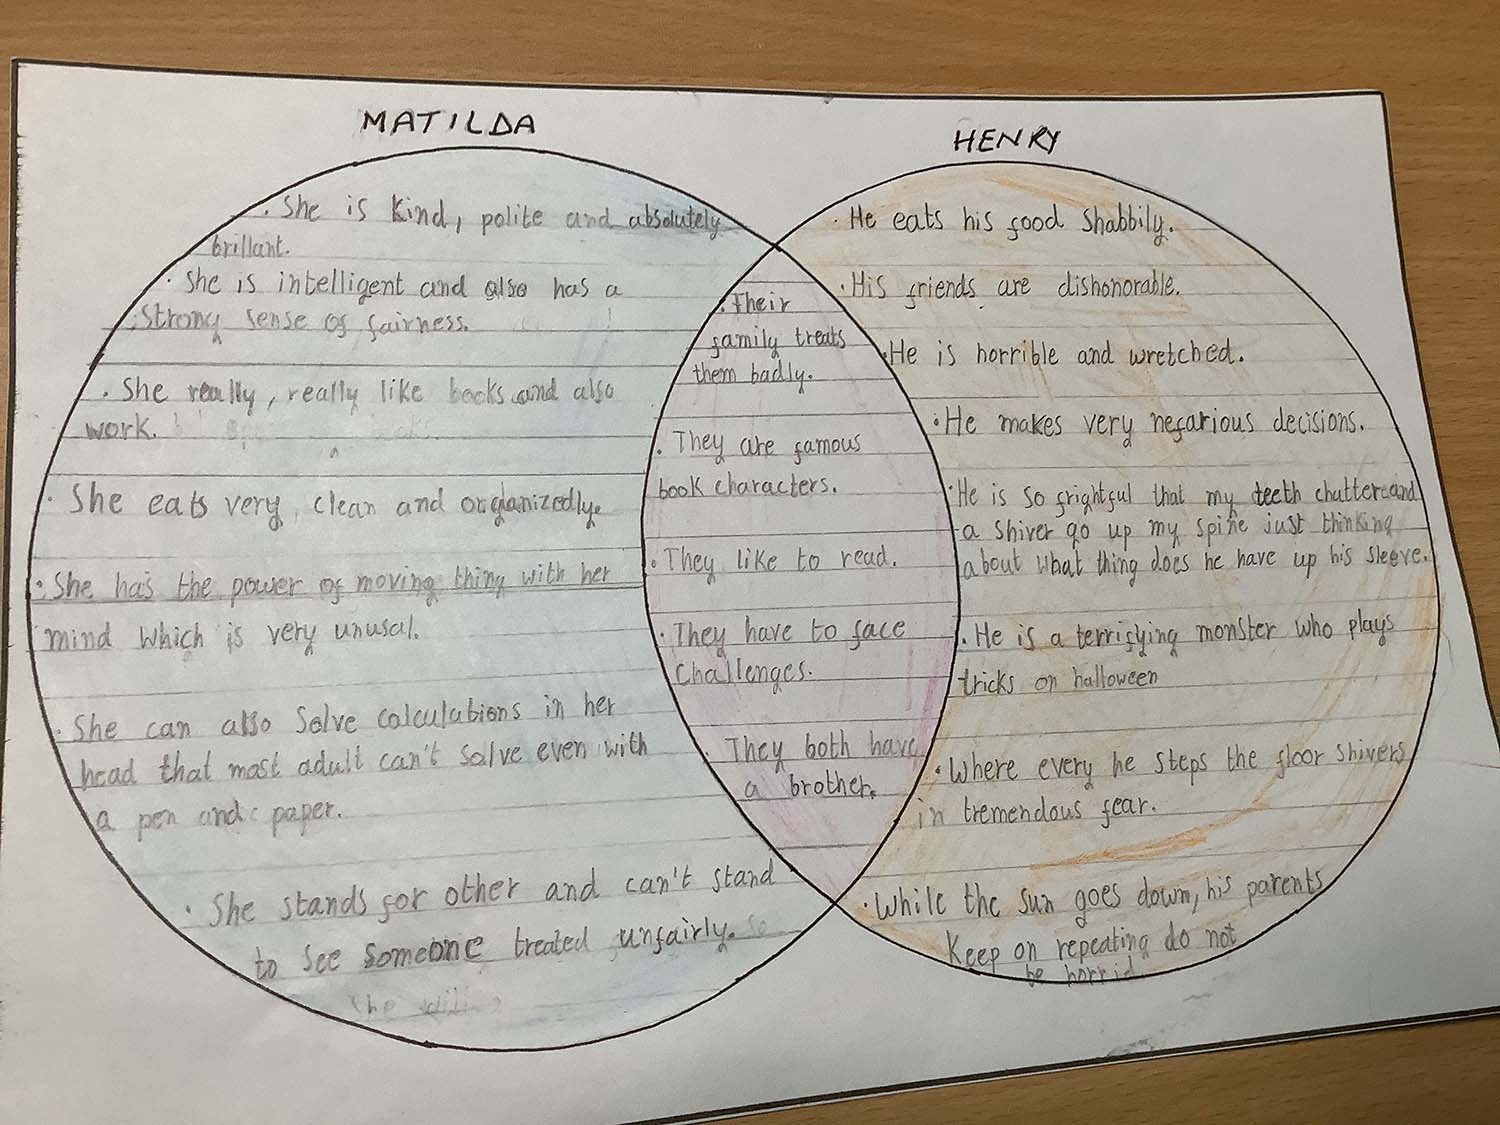 MATILDA
. She is kind, polite and absolutely
brillant.
. She is intelligent and also has a
strong sense of fairness.
. She really, really like books and also
work.
. She eats very clean and organizedly.
. She has the power of moving thing with her
mind which is very unusal.
. She can also solve calculations in her
head that most adult can't solve even with
a pen and paper.
. She stands for other and can't stand
to see someone treated unfairly.
. Their
family treats
them badly.
. They are famous
book characters.
. They like to read.
. They have to face
challenges.
. They both have
a brother.
HENRY
. He eats his food shabbily.
. His friends are dishonorable.
. He is horrible and wretched.
. He makes very nefarious decisions.
. He is so frightful that my teeth chatter and
a shiver go up my spine just thinking
about what thing does he have up his sleeve.
. He is a terrifying monster who plays
tricks on halloween
. Where every he steps the floor shivers
in tremendous fear.
. While the sun goes down, his parents
keep on repeating do not
be horrid